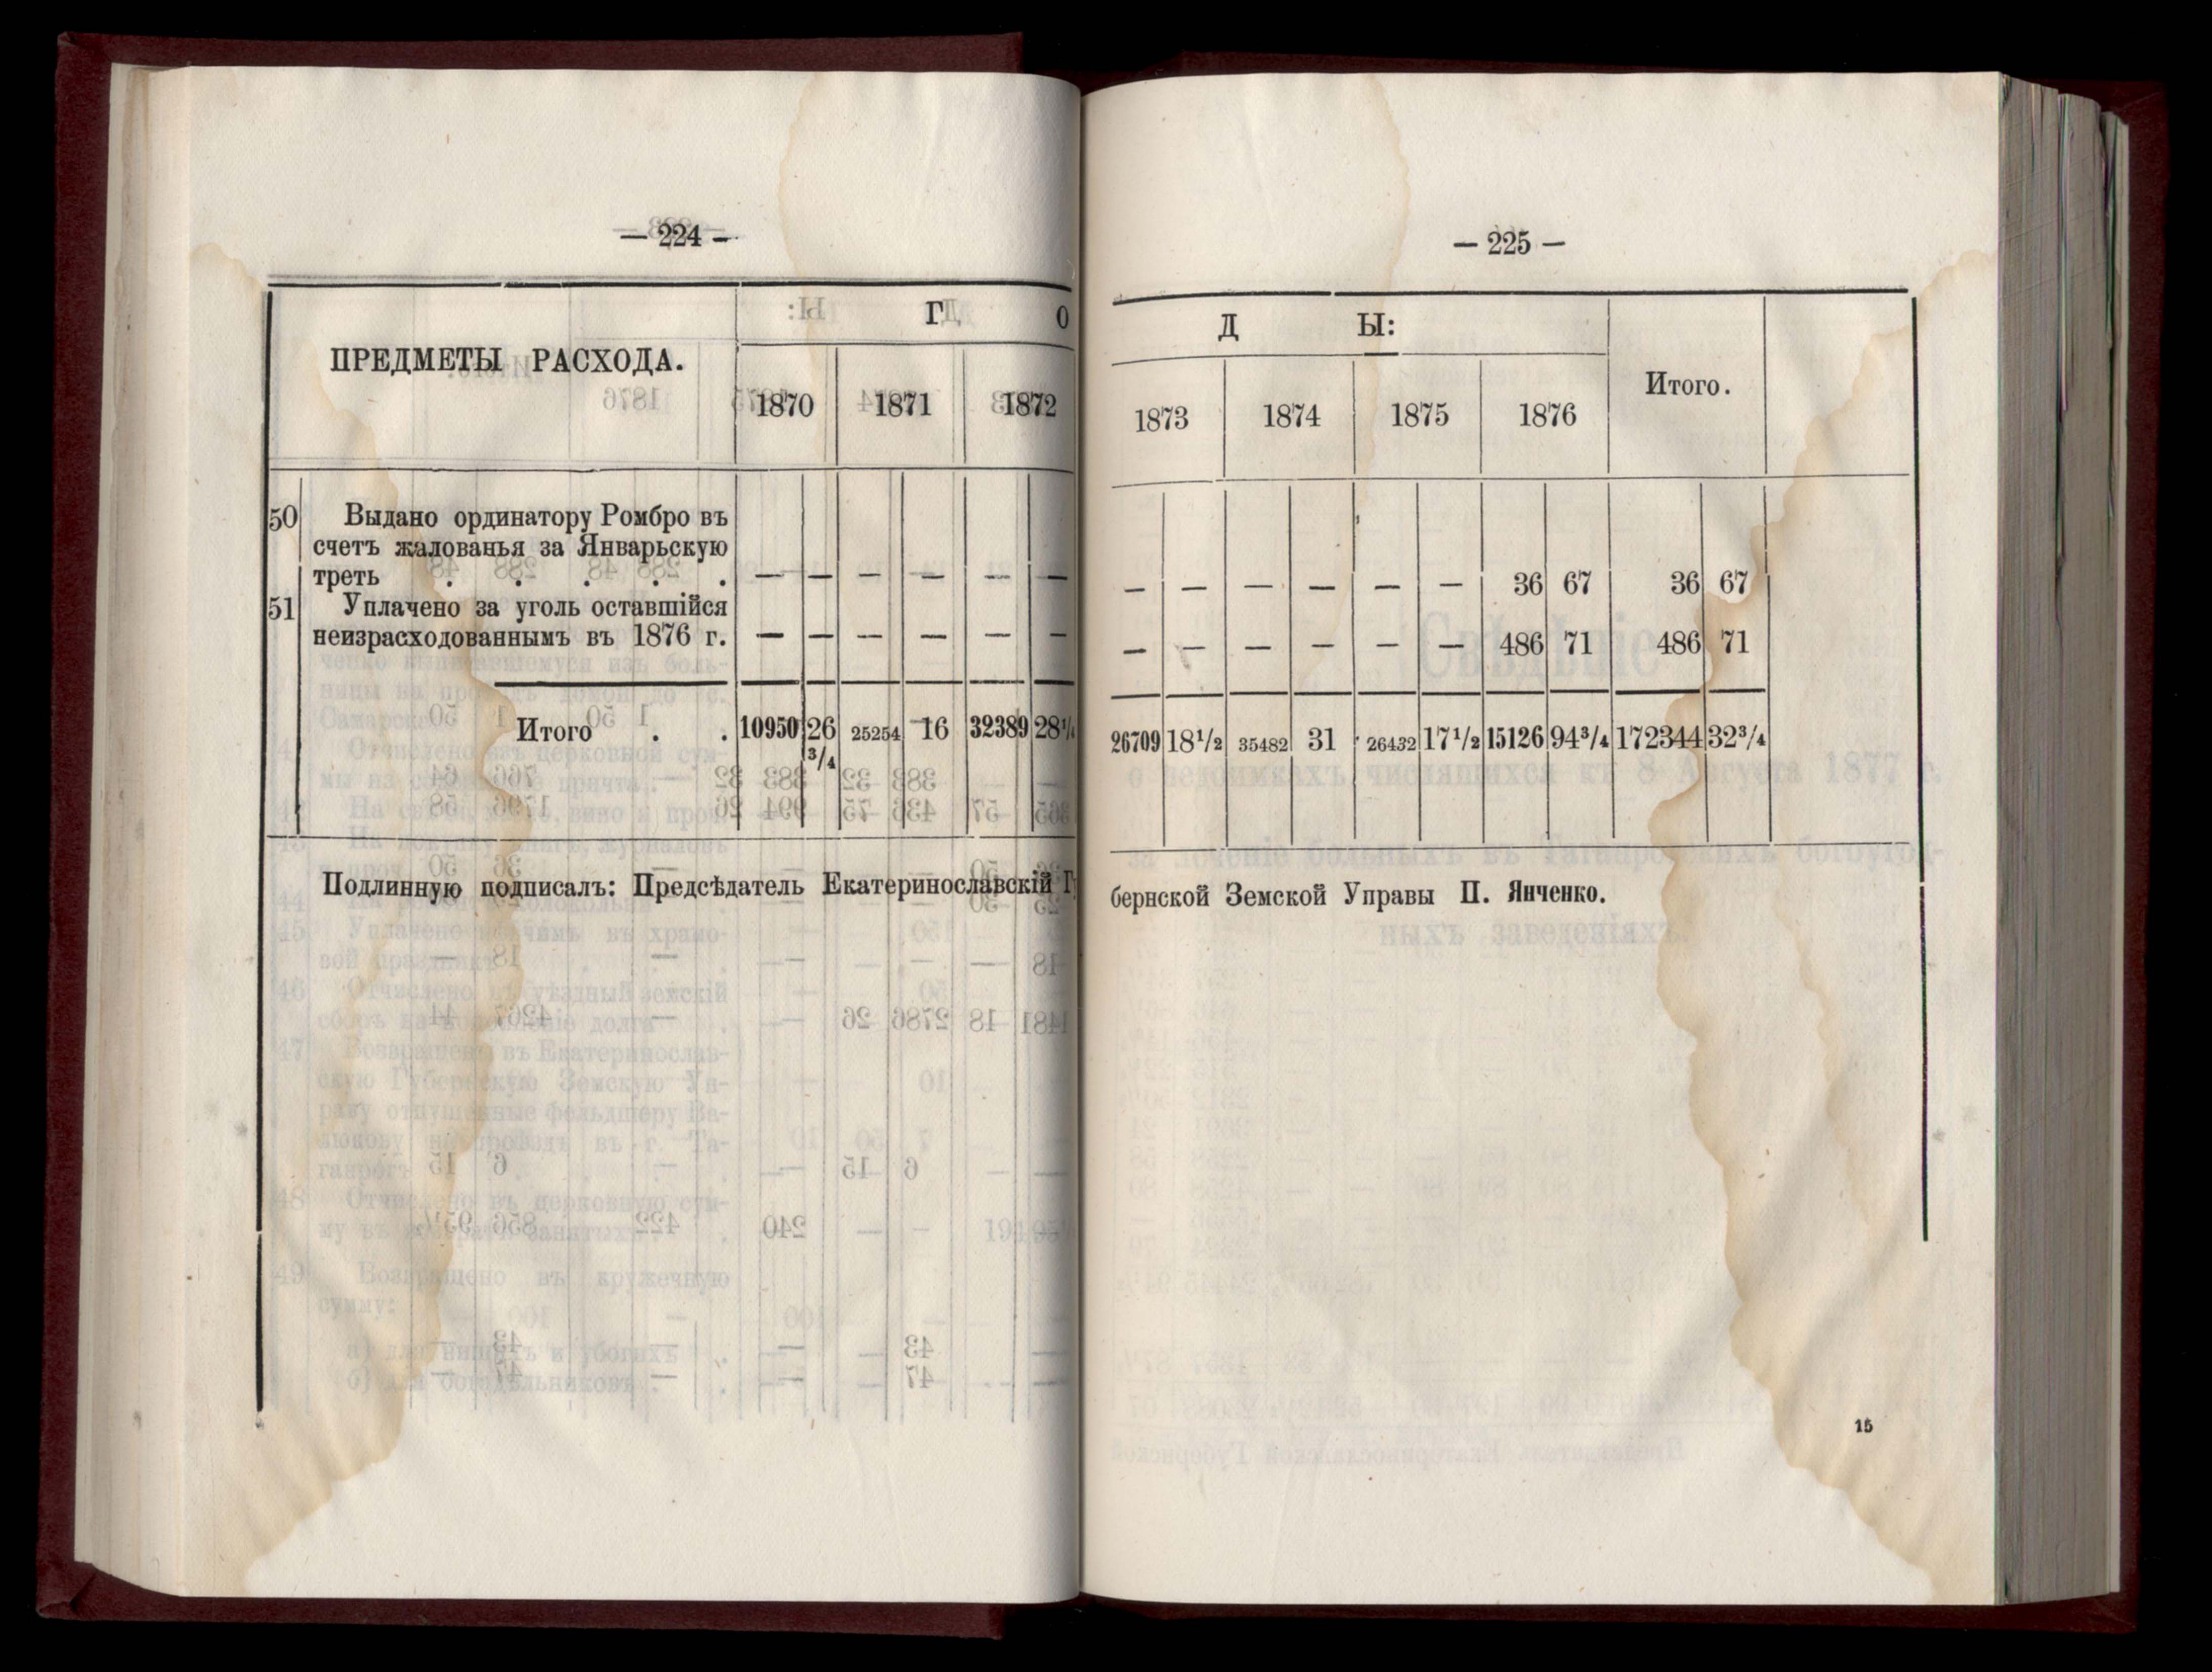 — 224 —
ПРЕДМЕТЫ РАСХОДА.
Г О
1870 1871 1872
50 Выдано ординатору Ромбро въ
счетъ жалованья за Январьскую
треть . . . . . — — — — — —
51 Уплачено за уголь оставшійся
неизрасходованнымъ въ 1876 г. — — — — — —
Итого . . 10950 26 3/4 25254 16 32389 28 1/4
Подлинную подписалъ: Предсѣдатель Екатеринославскій Г
— 225 —
Д Ы:
Итого.
1873 1874 1875 1876
— — — — — — 36 67 36 67
— — — — — — 486 71 486 71
26709 18 1/2 35482 31 26432 17 1/2 15126 94 3/4 172344 32 3/4
бернской Земской Управы П. Янченко.
15